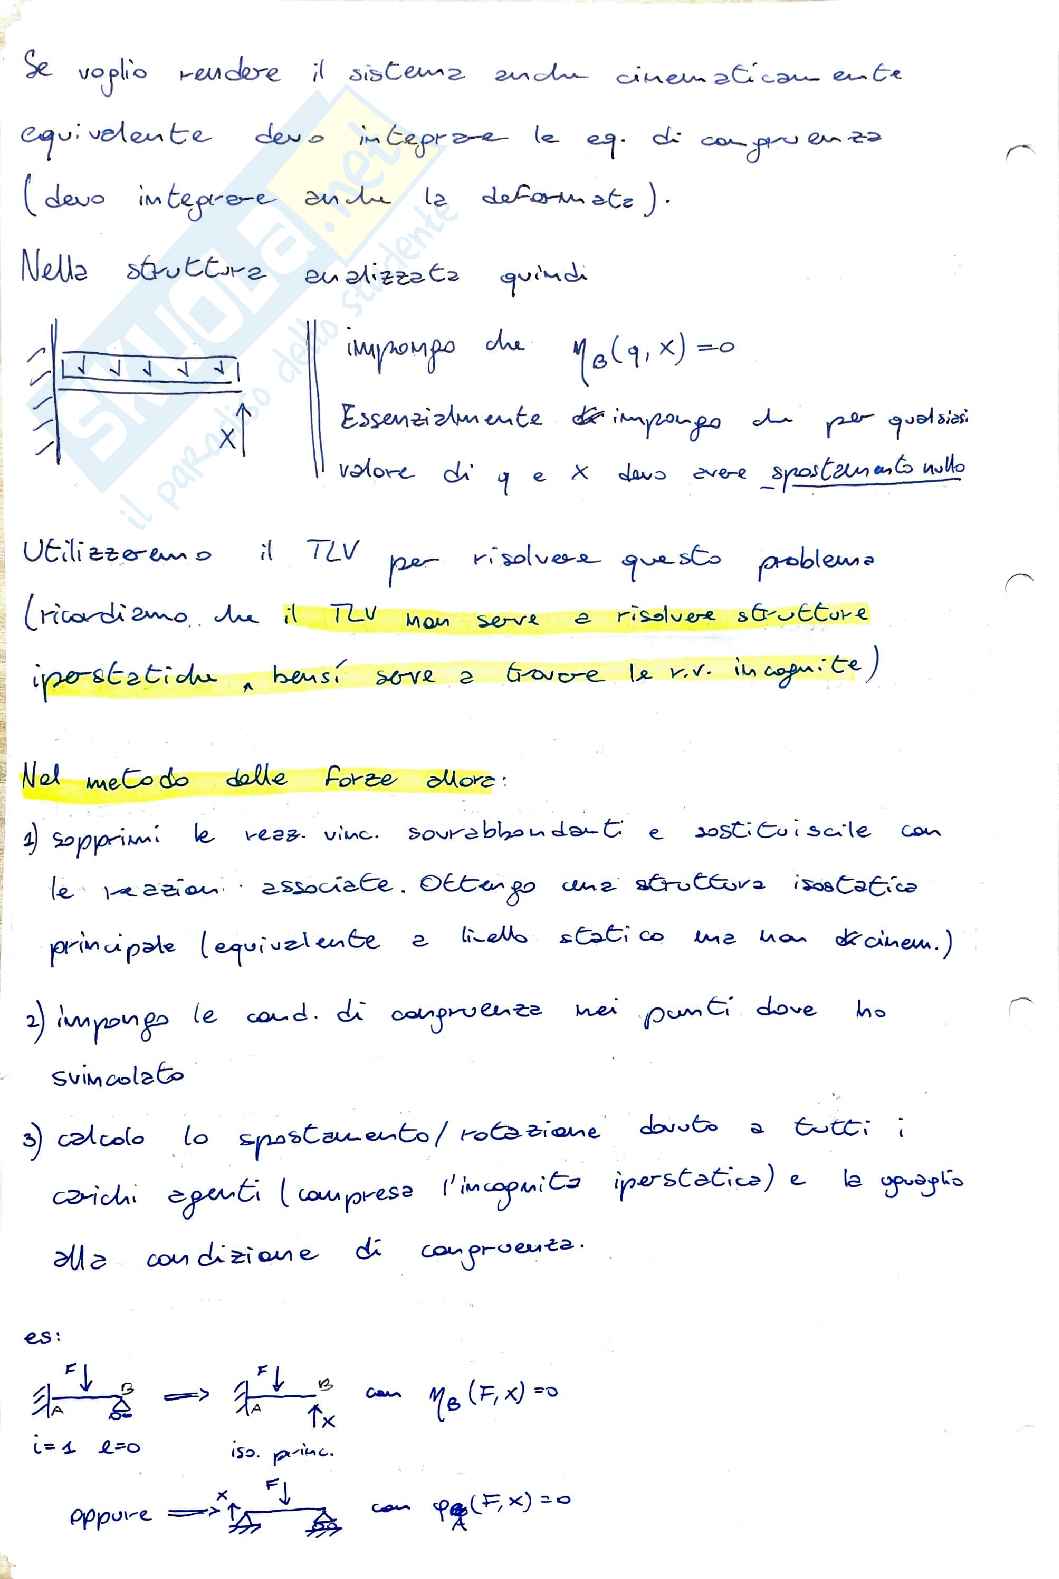 Se voglio rendere il sistema anche cinematicamente
equivalente devo integrare le eq. di congruenza
(devo integrare anche la deformata).
Nella struttura analizzata quindi
X
impongo che η_B(q, x) = 0
Essenzialmente impongo che per qualsiasi
valore di q e x devo avere spostamento nullo
Utilizzeremo il TLV per risolvere questo problema
(ricordiamo che il TLV non serve a risolvere strutture
iperstatiche, bensí serve a trovare le r.v. incognite)
Nel metodo delle forze allora:
1) sopprimi le reaz. vinc. sovrabbondanti e sostituiscile con
le reazioni associate. Ottengo una struttura isostatica
principale (equivalente a livello statico ma non cinem.)
2) impongo le cond. di congruenza nei punti dove ho
svincolato
3) calcolo lo spostamento/rotazione dovuto a tutti i
carichi agenti (compresa l'incognita iperstatica) e lo uguaglio
alla condizione di congruenza.
es:
F A B F A B X con η_B (F, x) = 0
i=1 l=0 iso. princ.
oppure X F con φ_A (F, x) = 0
SKUOLA.net
il paradiso dello studente